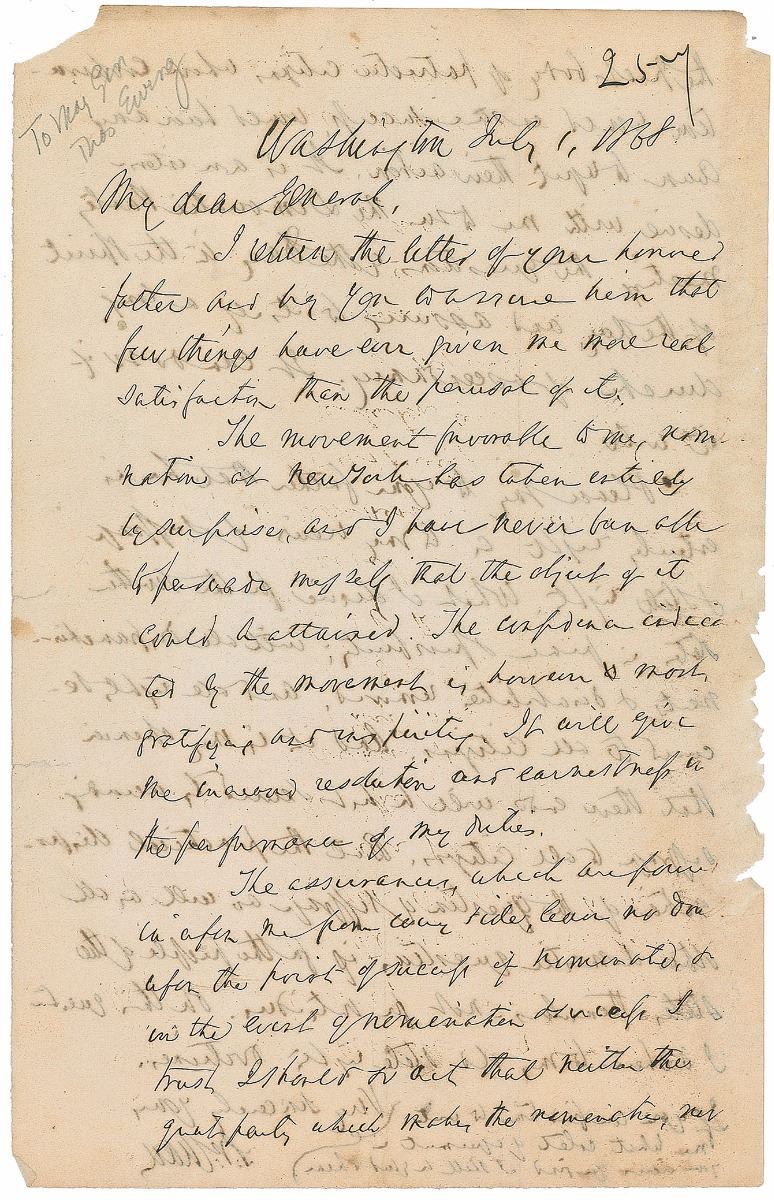 257
To Maj Gen
Thos Ewing
Washington July 1, 1868
My dear General,
I return the letter of your honored
father and beg you to assure him that
few things have ever given me more real
satisfaction than the perusal of it.
The movement favorable to my nomi-
nation at New York has taken entirely
by surprise, and I have never been able
to persuade myself that the object of it
could be attained. The confidence indica
ted by the movement is however most
gratifying and inspiriting. It will give
me increased resolution and earnestness in
the performance of my duties.
The assurances, which are poured
in upon me from every side, leave no dou
upon the point of success if nominated, &
in the event of nomination & success I
trust I should so act that neither the
great party which makes the nomination, nor